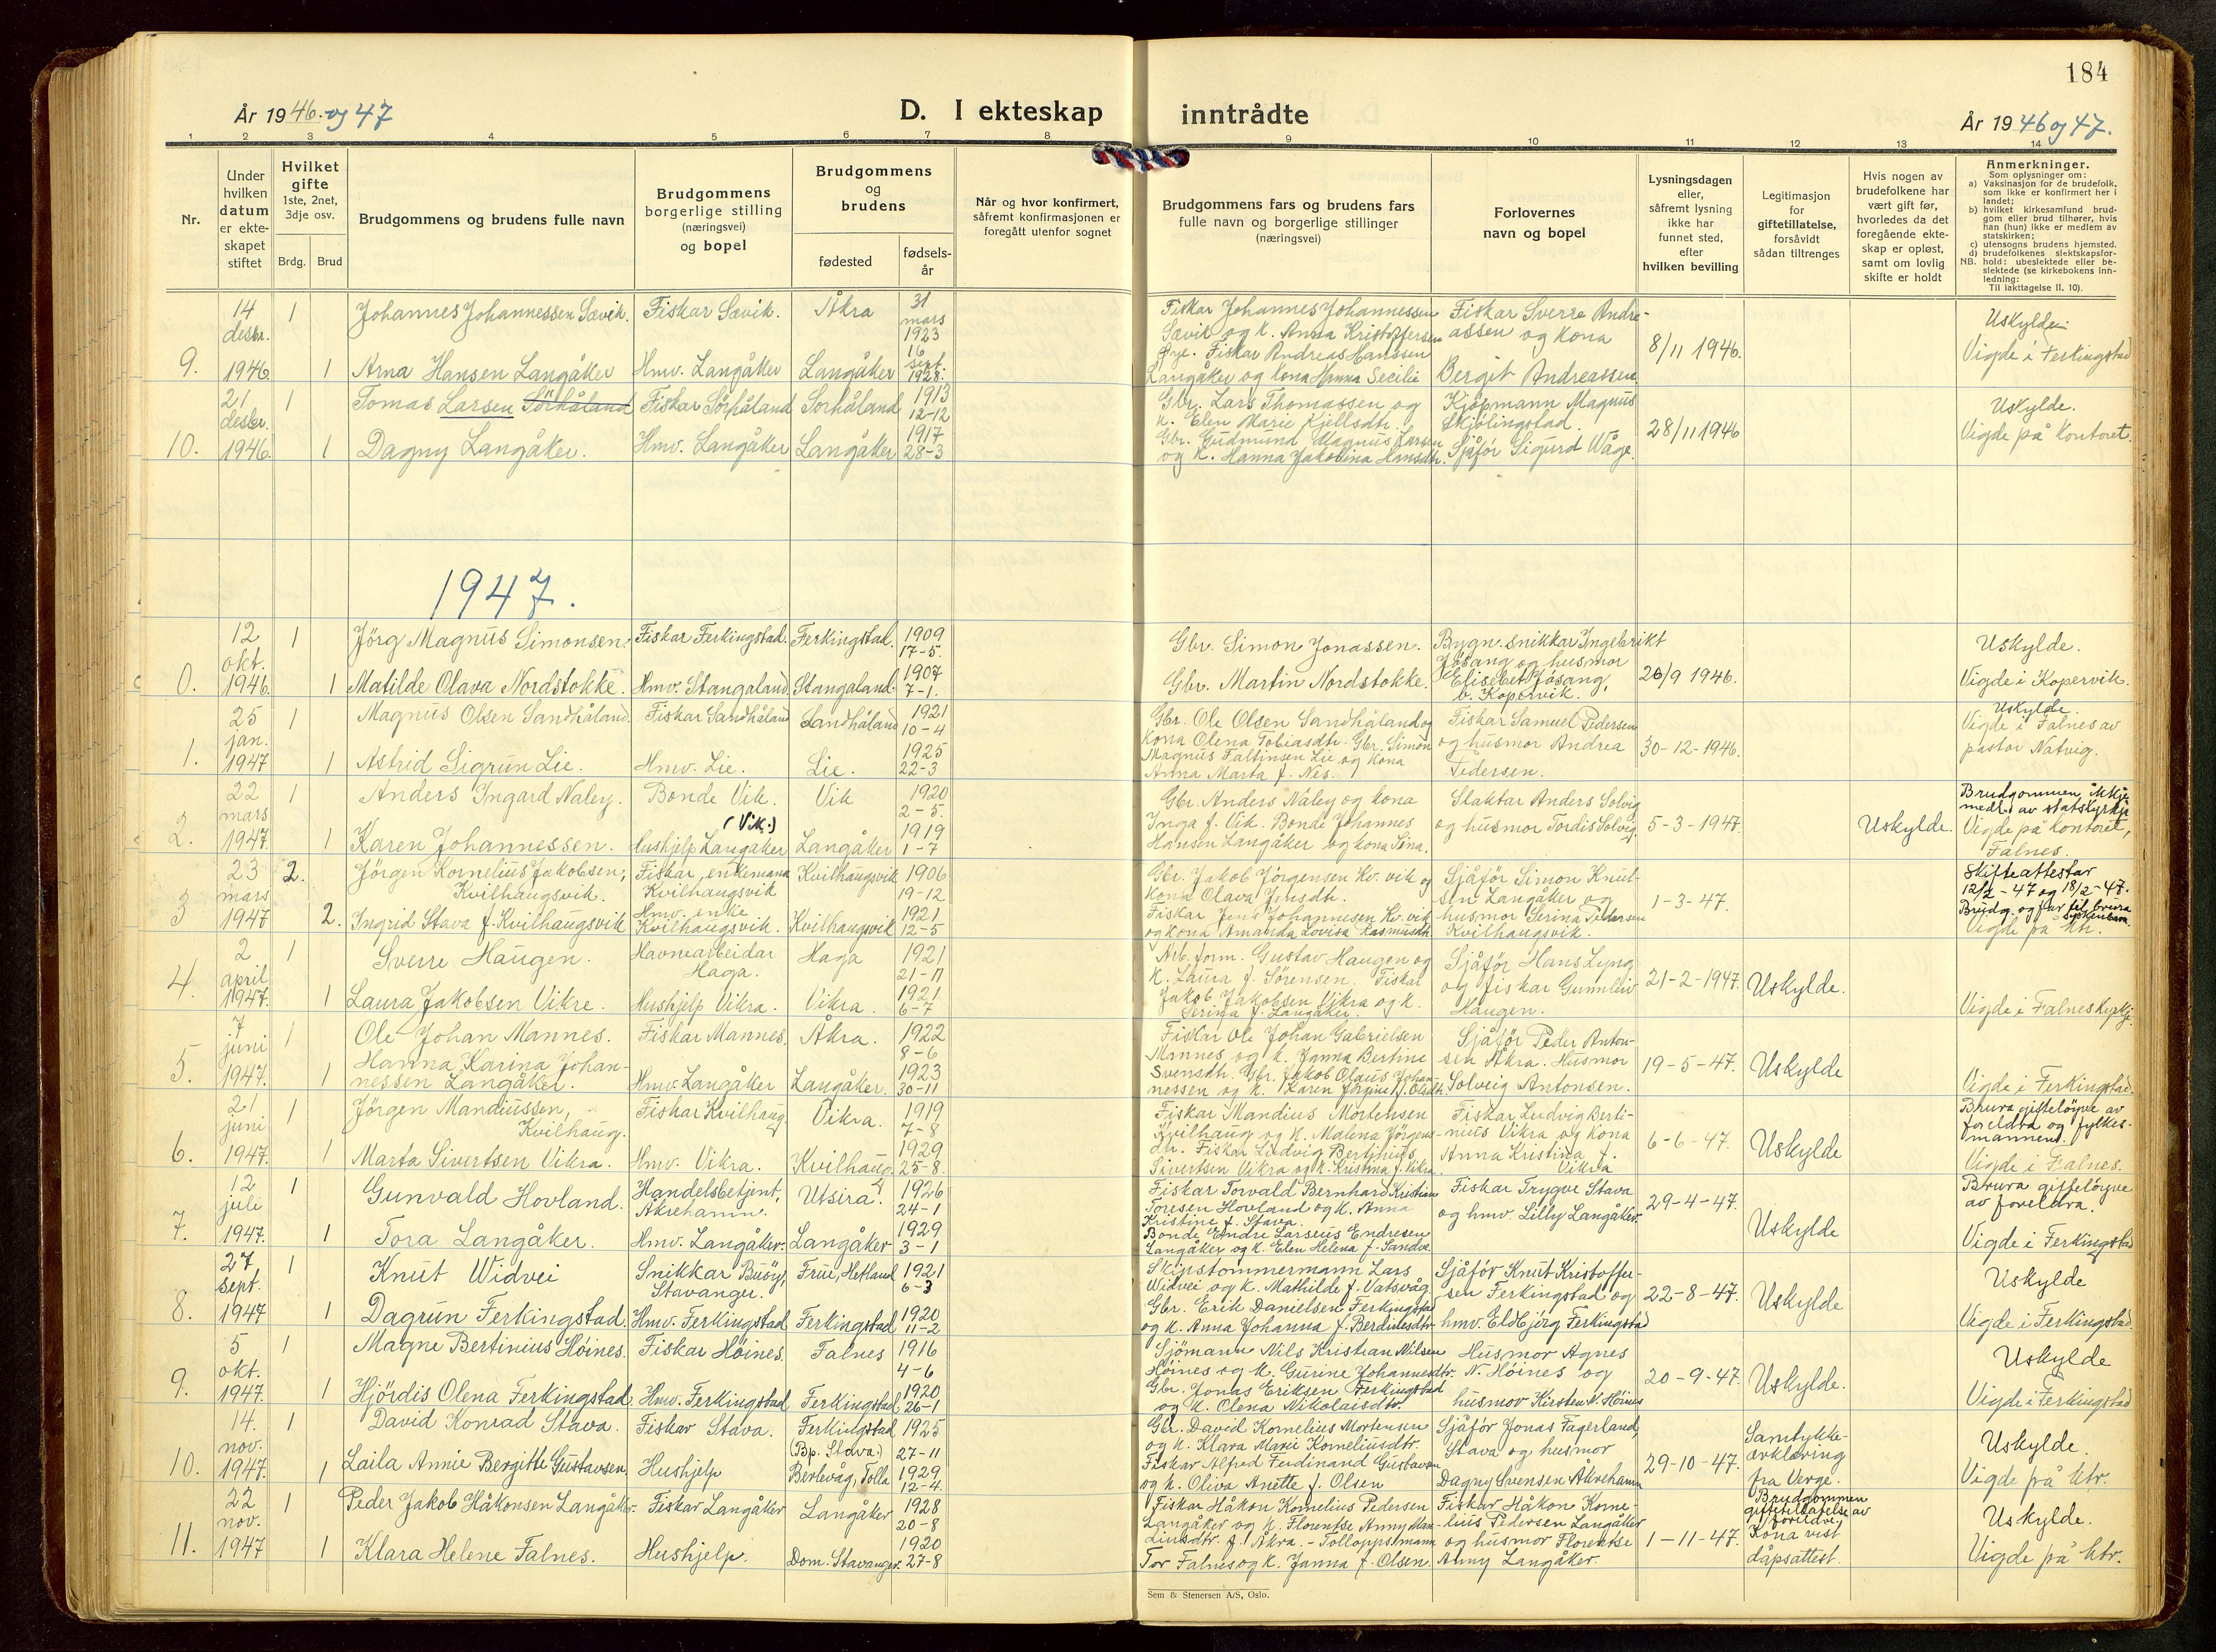 184
År 1946. og 47
D. I ekteskap inntrådte
År 1946 og 47.
1 2 3 4 5 6 7 8 9 10 11 12 13 14
Nr.
Under
hvilken
datum
er ekte-
skapet
stiftet
Hvilket
gifte
1ste, 2net,
3dje osv.
Brdg. Brud
Brudgommens og brudens fulle navn
Brudgommens
borgerlige stilling
(næringsvei)
og bopel
Brudgommens
og
brudens
fødested
fødsels-
år
Når og hvor konfirmert,
såfremt konfirmasjonen er
foregått utenfor sognet
Brudgommens fars og brudens fars
fulle navn og borgerlige stillinger
(næringsvei)
Forlovernes
navn og bopel
Lysningsdagen
eller,
såfremt lysning
ikke har
funnet sted,
efter
hvilken bevilling
Legitimasjon
for
giftetillatelse,
forsåvidt
sådan tiltrenges
Hvis nogen av
brudefolkene har
vært gift før,
hvorledes da det
foregående ekte-
skap er opløst,
samt om lovlig
skifte er holdt
Anmerkninger.
Som oplysninger om:
a) Vaksinasjon for de brudefolk,
som ikke er konfirmert her i
landet;
b) hvilket kirkesamfund brud-
gom eller brud tilhører, hvis
han (hun) ikke er medlem av
statskirken;
c) utensogns brudens hjemsted.
d) brudefolkenes slektskapsfor-
hold: ubeslektede eller be-
slektede (se kirkebokens inn-
ledning:
NB. Til iakttagelse II. 10).
9.
14
desbr.
1946.
1
1
Johannes Johannessen Sævik.
Arna Hansen Langåker
Fiskar Sævik.
Hmv. Langåker
Åkra
Langåker
31
mars
1923
16
sept.
1928.
Fiskar Johannes Johannessen
Sævik og k. Anna Kristoffersen
Øye. Fiskar Andreas Hanssen
Langåker og kona Hanna Secilie
Fiskar Sverre Andre-
assen og kona
Bergit Andreassen
8/11 1946.
Uskylde.
Vigde i Ferkingstad
10.
21
desbr.
1946.
1
1
Tomas Larsen Sörhåland
Dagny Langåker.
Fiskar Sörhåland
Hmv. Langåker
Sorhåland
Langåker
1913
12-12
1917
28-3
Gbr. Lars Thomassen og
k. Elen Marie Kjellsdtr.
Gbr. Gudmund Magnus Larsen
og k. Hanna Jakobina Hansdtr.
Kjöpmann Magnus
Skjölingstad.
Sjåför Sigurd Våge.
28/11 1946
Uskylde.
Vigde på kontoret.
1947.
0.
12
okt.
1946
1
1
Jörg Magnus Simonsen.
Matilde Olava Nordstokke.
Fiskar Ferkingstad.
Hmv. Stangaland
Ferkingstad
Stangaland
1909
17-5.
1907
7-1.
Gbr. Simon Jonassen.
Gbr. Martin Nordstokke.
Bygn. snikkar Ingebrikt
Jösang og husmor
Elisebet Jösang,
b. Kopervik.
20/9 1946.
Uskylde.
Vigde i Kopervik.
1.
25
jan.
1947
1
1
Magnus Olsen Sandhåland.
Astrid Sigrun Lie.
Fiskar Sandhåland
Hmv. Lie.
Sandhåland
Lie.
1921
10-4
1925
22-3
Gbr. Ole Olsen Sandhåland og
kona Olena Tobiasdtr. Gbr. Simon
Magnus Faltinsen Lie og kona
Anna Marta f. Nes.
Fiskar Samuel Pedersen
og husmor Andrea
Pedersen.
30-12-1946.
Uskylde.
Vigde i Falnes av
pastor Natvig.
2.
22
mars
1947.
1
1
Anders Ingard Naley.
Karen Johannessen.
Bonde Vik.
(Vik.)
Hushjelp Langåker
Vik
Langåker
1920
2-5.
1919
1-7
Gbr. Anders Naley og kona
Inga f. Vik. Bonde Johannes
Hansen Langåker og kona Sina.
Slaktar Anders Solvig
og husmor Tordis Solvig
5-3-1947.
Uskylde.
Brudgommen ikkje
medl. av statskyrkja
Vigde på kontoret,
Falnes.
3
23
mars
1947
2.
2.
Jörgen Kornelius Jakobsen,
Kvilhaugsvik.
Ingrid Stava f. Kvilhaugsvik
Fiskar, enkemann
Kvilhaugsvik
Hmv. enke
Kvilhaugsvik.
Kvilhaugsvik
Kvilhaugsvik
1906
19-12
1921
12-5
Gbr. Jakob Jörgensen Kv.vik og
kona Olava Jensdtr.
Fiskar Jens Johannesen Kv.vik
og kona Amanda Lovisa Rasmusdtr.
Sjåför Simon Knut-
sen Langåker og
husmor Serina Pedersen
Kvilhaugsvik.
1-3-47.
Skifteattestar
12/2-47 og 18/2-47.
Brudg. og far til brura
syskenbarn.
Vigde på ktr.
4.
2
april
1947.
1
1
Sverre Haugen.
Laura Jakobsen Vikre.
Havnearbeidar
Haga.
Hushjelp Vikra.
Haga
Vikra.
1921
21-11
1921
6-7
Arb. form. Gustav Haugen og
k. Laura f. Sörensen. Fiskar
Jakob Jakobsen Vikra og k.
Serina f. Langåker.
Sjåför Hans Lyng
og fiskar Gunnleiv
Haugen.
21-2-1947.
Uskylde.
Vigde i Falnes kyrkje.
5.
7
juni
1947.
1
1
Ole Johan Mannes.
Hanna Karina Johan-
nessen Langåker.
Fiskar Mannes.
Hmv. Langåker
Åkra.
Langåker.
1922
8-6
1923
30-11
Fiskar Ole Johan Gabrielsen
Mannes og k. Janna Bertine
Svensdtr. Gbr. Jakob Olaus Johan-
nessen og k. Karen Jörgine f. Olsdtr.
Sjåför Peder Anton-
sen Åkra. Husmor
Solveig Antonsen.
19-5-47.
Uskylde
Vigde i Ferkingstad.
6.
21
juni
1947.
1
1
Jörgen Mandiussen,
Kvilhaug.
Marta Sivertsen Vikra.
Fiskar Kvilhaug
Hmv. Vikra.
Vikra.
Kvilhaug
1919
7-8
1929
25-8.
Fiskar Mandius Mortensen
Kvilhaug og k. Malena Jörgens-
dtr. Fiskar Ludvig Bertinius
Sivertsen Vikra og k. Kristina f. Vikra.
Fiskar Ludvig Berti-
nius Vikra og kona
Anna Kristina f.
Vikra
6-6-47.
Uskylde
Brura gifteløyve av
foreldra og fylkes-
mannen.
Vigde i Falnes.
7.
12
juli
1947.
1
1
Gunvald Hovland.
Tora Langåker.
Handelsbetjent,
Åkrehamn.
Hmv. Langåker.
Utsira.
Langåker
1926
24-1
1929
3-1
Fiskar Torvald Bernhard Kristian
Toresen Hovland og k. Anna
Kristine f. Stava.
Bonde Endre Larseus Endresen
Langåker og k. Elen Helena f. Sandve
Fiskar Trygve Stava
og hmv. Lilly Langåker.
29-4-47.
Uskylde
Brura gifteløyve
av foreldra.
Vigde i Ferkingstad
8.
27
sept.
1947
1
1
Knut Widvei
Dagrun Ferkingstad.
Snikkar Busøy,
Stavanger.
Hmv. Ferkingstad
Frue, Hetland
Ferkingstad
1921
6-3
1920
11-2
Skipstommermann Lars
Widvei og k. Mathilde f. Vatsvåg.
Gbr. Erik Danielsen Ferkingstad
og k. Anna Johanna f. Berdinesdtr.
Sjåför Knut Kristoffer-
sen Ferkingstad og
hmv. Eldbjörg Ferkingstad
22-8-47.
Uskylde
Uskylde
Vigde i Ferkingstad.
9.
5
okt.
1947.
1
1
Magne Bertinius Höines.
Hjördis Olena Ferkingstad
Fiskar Höines.
Hmv. Ferkingstad
Falnes
Ferkingstad
1916
4-6
1920
26-1
Sjömann Nils Kristian Nilsen
Höines og k. Gurine Johannesdtr.
Gbr. Jonas Eriksen Ferkingstad
og k. Olena Nikolaisdtr.
Husmor Agnes
N. Höines og
husmor Kirsten N. Höines
20-9-47.
Uskylde.
Uskylde
Vigde i Ferkingstad
10.
14.
nov.
1947.
1
1
David Konrad Stava.
Laila Annie Bergitte Gustavsen.
Fiskar Stava.
Hushjelp
Ferkingstad
(Bp. Stava.)
Berlevåg, Tolla
1925
27-11
1929
12-4.
Gbr. David Kornelius Mortensen
og k. Klara Marie Korneliusdtr.
Fiskar Alfred Ferdinand Gustavsen
og k. Oliva Anette f. Olsen
Sjåför Jonas Fagerland,
Stava og husmor
Dagny Svensen Åkrehamn
29-10-47.
Samtykke-
erklæring
fra Verge.
Uskylde.
Vigde på ktr.
11.
22
nov.
1947
1
1
Peder Jakob Håkonsen Langåker.
Klara Helene Falnes.
Fiskar Langåker
Hushjelp.
Langåker
Dom. Stavanger.
1928
20-8
1920
27-8
Fiskar Håkon Kornelius Pedersen
Langåker og k. Florentse Anny Man-
diusdtr. f. Åkra. - Tolloppsynmann
Tor Falnes og k. Janna f. Olsen.
Fiskar Håkon Korne-
lius Pedersen Langåker
og husmor Florentse
Anny Langåker.
1-11-47.
Brudgommen
giftetillatelse av
foreldre.
Kona vist
dåpsattest.
Uskylde.
Vigde på ktr.
Sem & Stenersen A/S, Oslo.